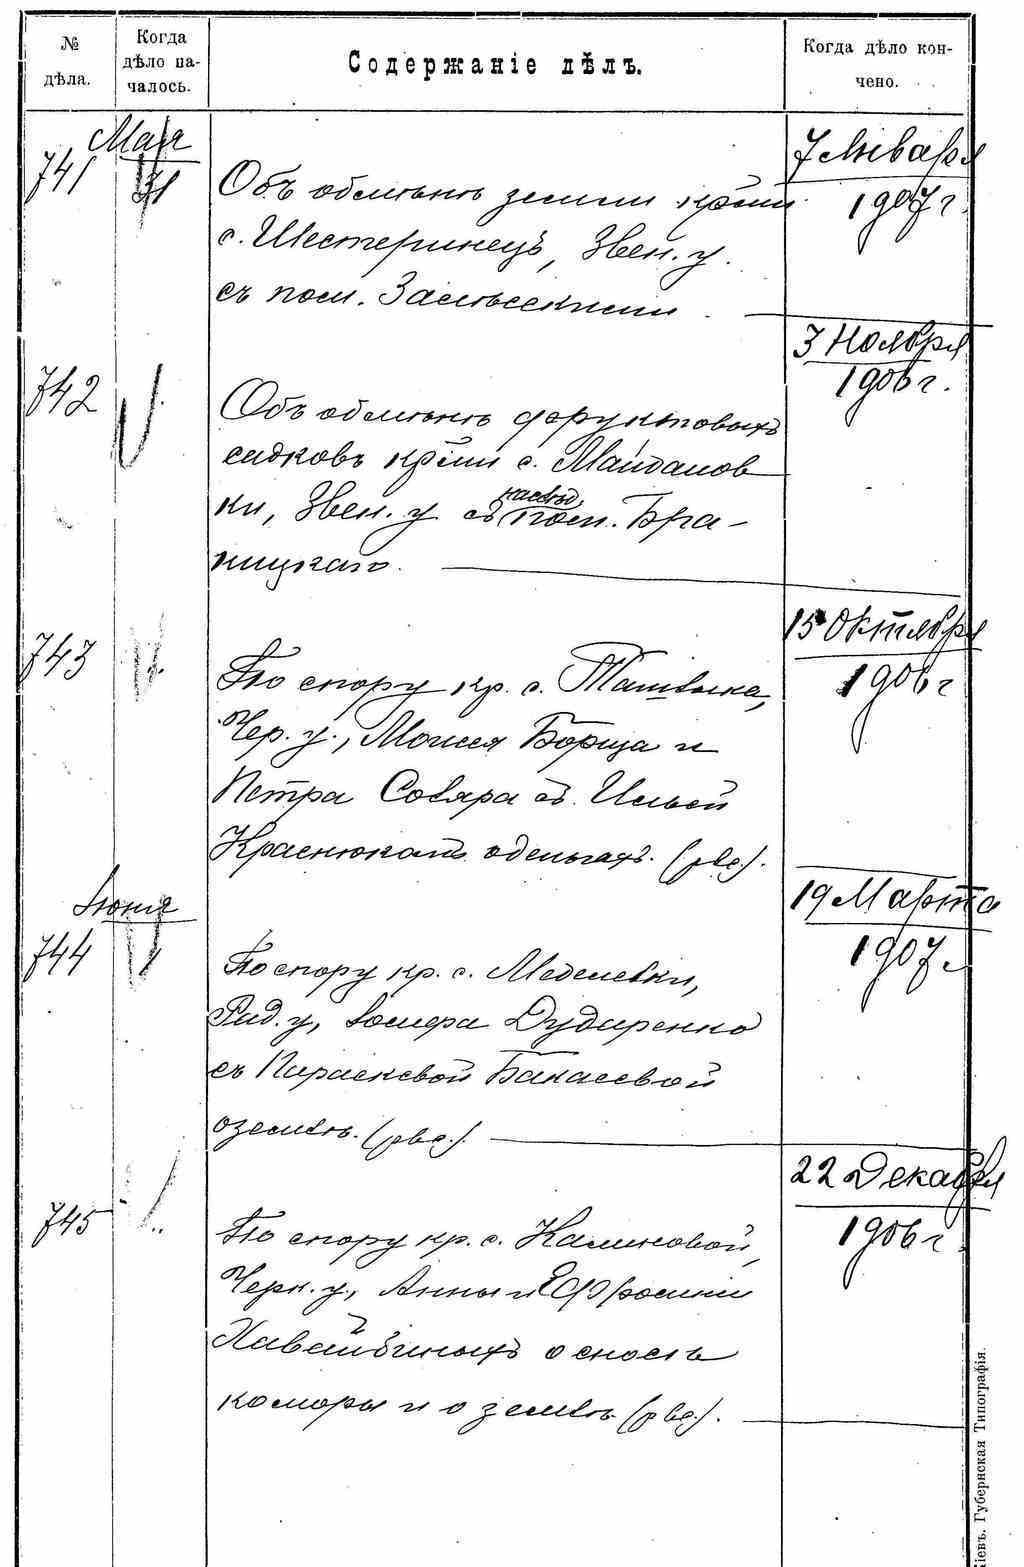 №
дѣла.
Когда
дѣло на-
чалось.
Содержаніе дѣлъ.
Когда дѣло кон-
чено.
Мая
741
31
Объ обмѣнѣ земли кр̃ми
с. Шестеринецъ, Звен. у.
съ пом. Залѣсскими
7 Января
1907 г.
742
Объ обмѣнѣ фруктовыхъ
садковъ кр̃ми с. Майданов
ки, Звен. у съ наслѣд. пом. Бра-
ницкаго.
3 Ноября
1906 г.
743
По спору кр. с. Ташлыка,
Чер. у., Моисея Борща и
Петра Совяра съ Ильей
Краснюкомъ о деньгахъ. (рвс.).
15 Октября
1906 г
Іюня
744
1
По спору кр. с. Меделевки,
Рад. у, Іосифа Дударенко
съ Параскевой Бакаевой
о землѣ. (рвс.).
19 Марта
1907 г
745
По спору кр. с. Калиновой,
Черк. у., Анны и Ефросиніи
о сносѣ
коморы и о землѣ (рвс.).
22 Декабря
1906 г.
Кіевъ. Губернская Типографія.